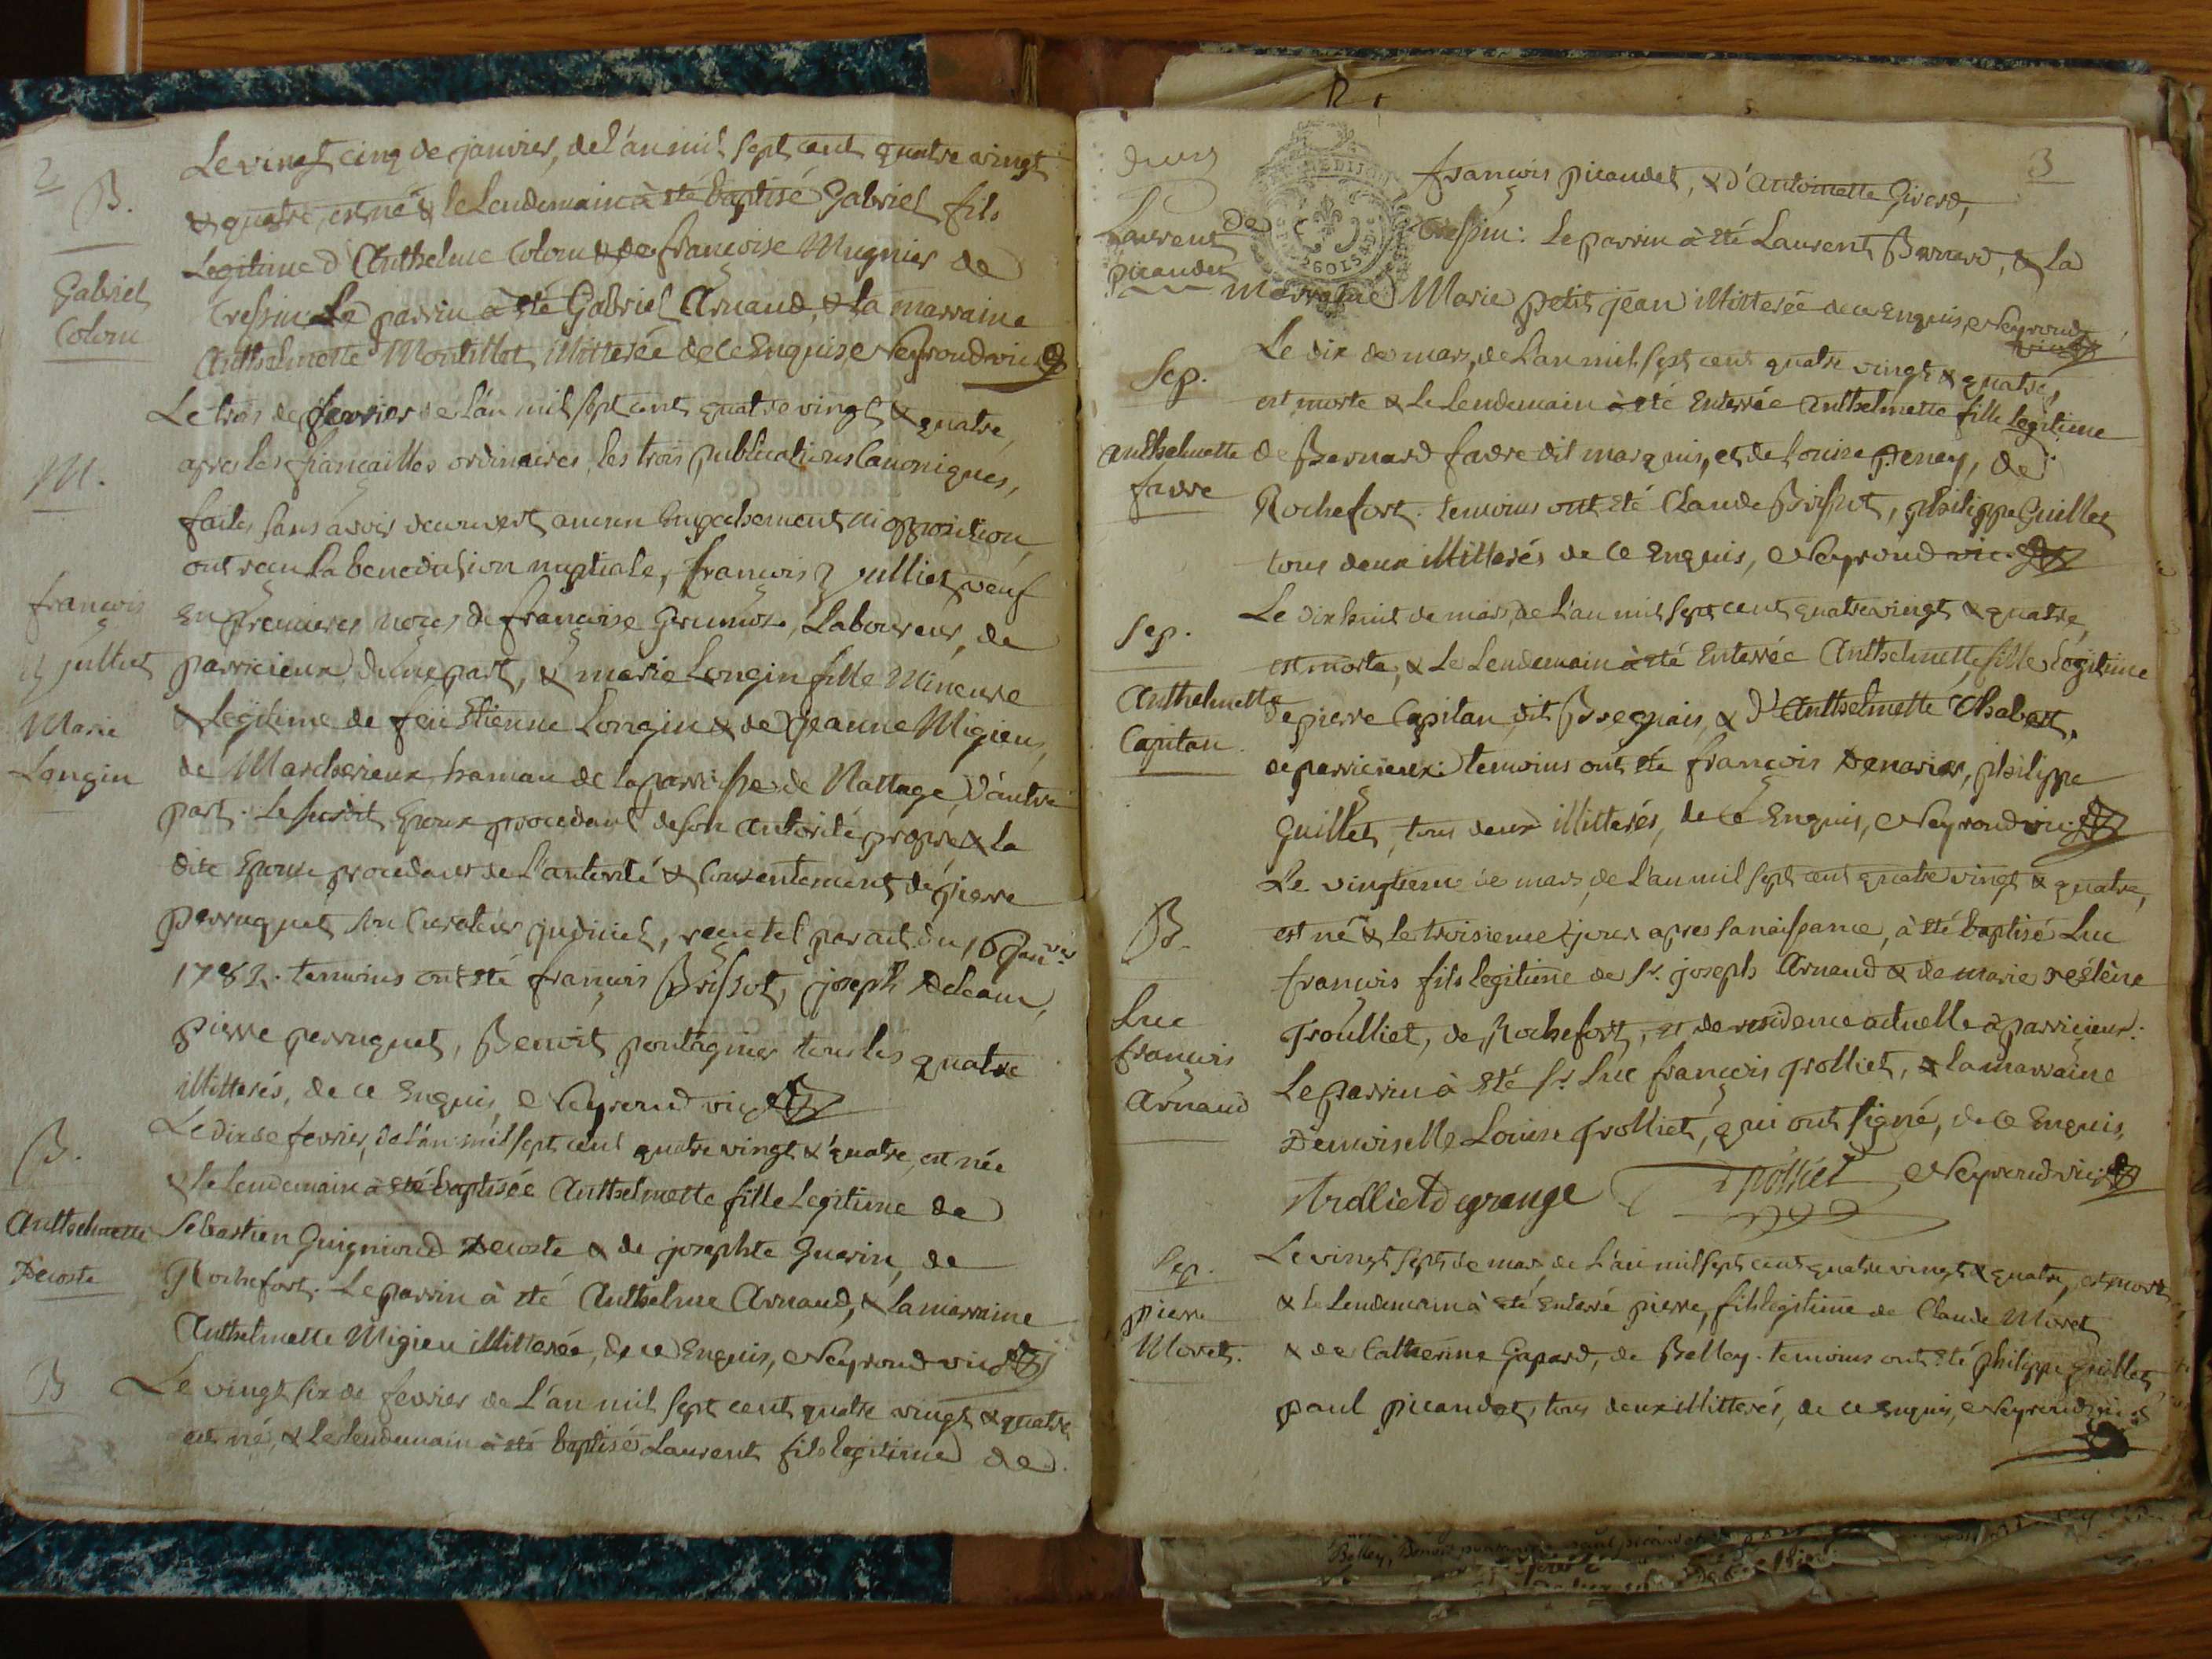 2
B.
Gabriel
Colom
Le vingt cinq de janvier, de l'an mil sept cent quatre vingt
& quatre, est né & le Lendemain à été baptisé Gabriel fils
Legitime d'Anthelme Colom & de françoise Mugnier de
Cressin. Le parrin à été Gabriel Arnaud, & la marraine
Anthelmette Montillet, illitterée de ce Enquise, Neyroud vic.
M.
françois
Julliet
Marie
Longin
Le trois de fevrier de l'an mil sept cent quatre vingt & quatre,
apres les fiançailles ordinaires, les trois publications Canoniques,
faites sans avoir decouvert aucun Empechement ni opposition
ont reçu la benediction nuptiale, françois Julliet, veuf
En premieres noces de françoise, Laboureur, de
parricieux d'une part, & marie Longin fille Mineure
& Legitime de feu Etienne Longin & de Jeanne Migieu,
de Marcherieux hamau de la parroisse de Nattage, d'autre
part. Le susdit Epoux procedant de son autorité propre & la
dite Epouse procedant de l'autorité & Consentement de pierre
perruquet son Curateur judiciel, reçu tel par act du 16 Janvier
1782. temoins ont été françois Brissot, joseph Deleau,
pierre perruquet, Benoit pontagnier tous les quatre
illitterés, de ce Enquis, Neyroud vic.
B.
Anthelmette
Decoste
Le dix de fevrier, de l'an mil sept cent quatre vingt & quatre, est née
& le Lendemain à été baptisée Anthelmette fille Legitime de
Sebastien Guignioud Decoste & de josephte Guerin, de
Rochefort. Le parrin à été Anthelme Arnaud, & la marraine
Anthelmette Migieu illitterée, de ce Enquis, Neyroud vic.
B
Le vingt six de fevrier de l'an mil sept cent quatre vingt & quatre
est né, & le lendemain à été baptisé Laurent fils legitime de
3
Laurent
picaudet
françois picaudet, & d'Antoinette Girerd,
De Cressin: Le parrin à été Laurent Berrard, & la
marraine Marie petit jean illitterée de ce Enquis, Neyroud
vic.
Sep.
Anthelmette
favre
Le dix de mars, de l'an mil sept cent quatre vingt & quatre,
est morte & le Lendemain à été Enterrée Anthelmette fille legitime
de Bernard favre dit marquis, et de Louise peney, de
Rochefort. temoins ont été Claude Brissot, philippe Guillet
tous deux illitterés de ce Enquis, Neyroud vic.
Sep.
Anthelmette
Capitan
Le dix huit de mars, de l'an mil sept cent quatre vingt & quatre,
est morte, & le Lendemain à été Enterrée Anthelmette, fille legitime
de pierre Capitan, dit Bregnais, & d'Anthelmette Chabert,
de parricieux: temoins ont été françois Denarier, philippe
Guillet, tous deux illitterés, de ce Enquis, Neyroud vic.
B.
Luc
françois
Arnaud
Le vingtieme de mars, de l'an mil sept cent quatre vingt & quatre,
est né & le troisieme jour apres sa naissance, à été baptisé Luc
françois fils legitime de Sr. joseph Arnaud & de marie
Troulliet, de Rochefort, et de residence actuelle à parricieux:
Le parrin à été Sr Luc françois Trolliet, & la marraine
Demoiselle Louise Trolliet, qui ont signé, de ce Enquis,
Trolliet degrange Trolliet Neyroud vic.
Sep.
pierre
Moret.
Le vingt sept de mars, de l'an mil sept cent quatre vingt & quatre, est mort
& le Lendemain à été Enterré pierre, fils legitime de Claude Moret
& de Catherine Gapard, de Belley. temoins ont été philippe guillet,
paul picaudet, tous deux illitterés, de ce Enquis, Neyroud vic.